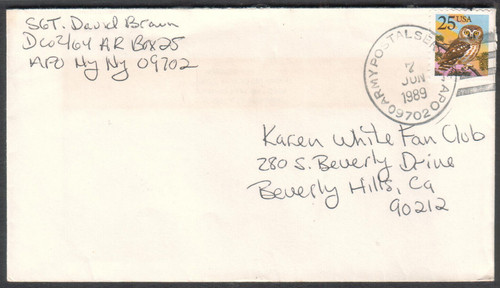 SGT. David Braun
D co 2/64 AR Box 25
APO Ny Ny 09702
25 USA
ARMY POSTAL SER
APO
7
JUN
1989
09702
Karen White Fan Club
280 S. Beverly Drive
Beverly Hills, Ca
90212